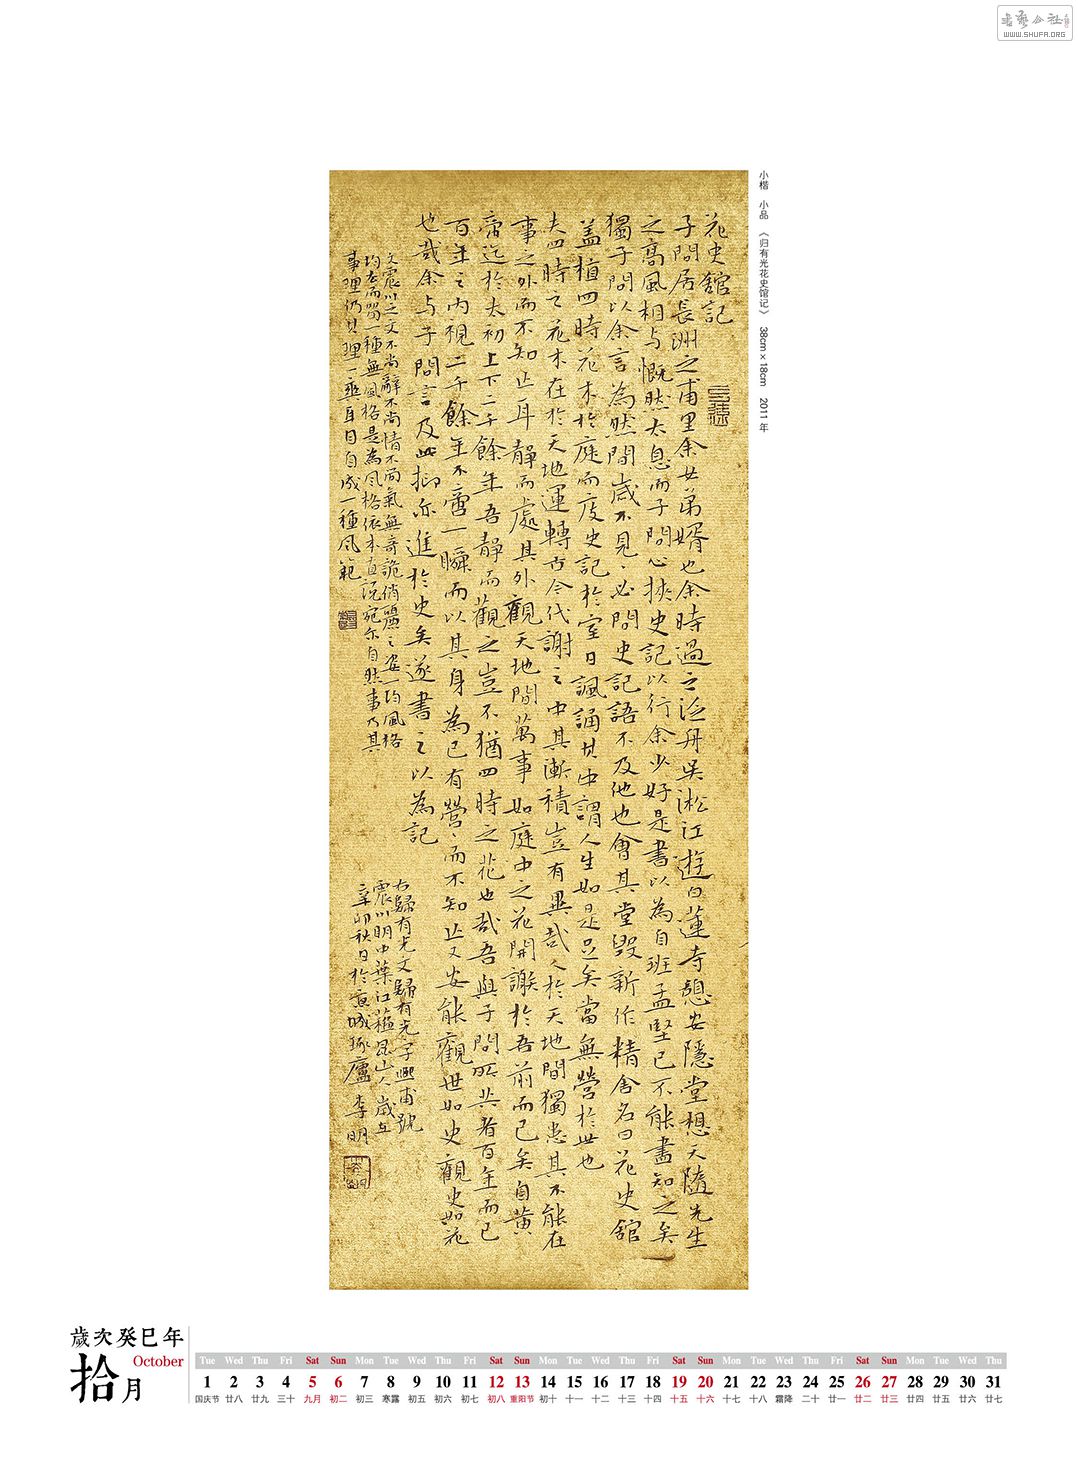 書藝公社
WWW.SHUFA.ORG
小楷 小品 《归有光花史馆记》 38cm×18cm 2011年
花史館記
子問居長洲之甫里余女弟婿也余時過之泛舟吳淞江遊白蓮寺憩安隱堂想天隨先生
之高風相与慨然太息而子問必挾史記以行余少好是書以為自班孟堅已不能盡知之矣
獨子問以余言為然間歲不見、必問史記語不及他也會其堂毀新作精舍名曰花史館
盖植四時花木於庭而庋史記於室日諷誦其中謂人生如是足矣當無營於世也
夫四時之花木在於天地運轉古今代謝之中其漸積豈有異哉人於天地間獨患其不能在
事之外而不知止耳靜而處其外觀天地間萬事如庭中之花開謝於吾前而已矣自黃
帝迄於太初上下二千餘年吾靜而觀之豈不猶四時之花也哉吾與子問所共者百年而已
百年之內視二千餘年不啻一瞬而以其身為已有營、而不知止又安能觀世如史觀史如花
也哉余与子問言及此抑亦進於史矣遂書之以為記
右歸有光文歸有光字熙甫號
震川明中葉江蘇崑山人歲在
辛卯秋日於京城琢廬 李明
文震川之文不尚辭不尚情不尚氣無奇詭俏麗之姿一均風格
均在而留一種無風格是為風格依本直說宛尔自然事乃其
事理仍其理一乘耳目自成一種風範
歲次癸巳年
拾月 October
Tue Wed Thu Fri Sat Sun Mon Tue Wed Thu Fri Sat Sun Mon Tue Wed Thu Fri Sat Sun Mon Tue Wed Thu Fri Sat Sun Mon Tue Wed Thu
1 2 3 4 5 6 7 8 9 10 11 12 13 14 15 16 17 18 19 20 21 22 23 24 25 26 27 28 29 30 31
国庆节 廿八 廿九 三十 九月 初二 初三 寒露 初五 初六 初七 初八 重阳节 初十 十一 十二 十三 十四 十五 十六 十七 十八 霜降 二十 廿一 廿二 廿三 廿四 廿五 廿六 廿七